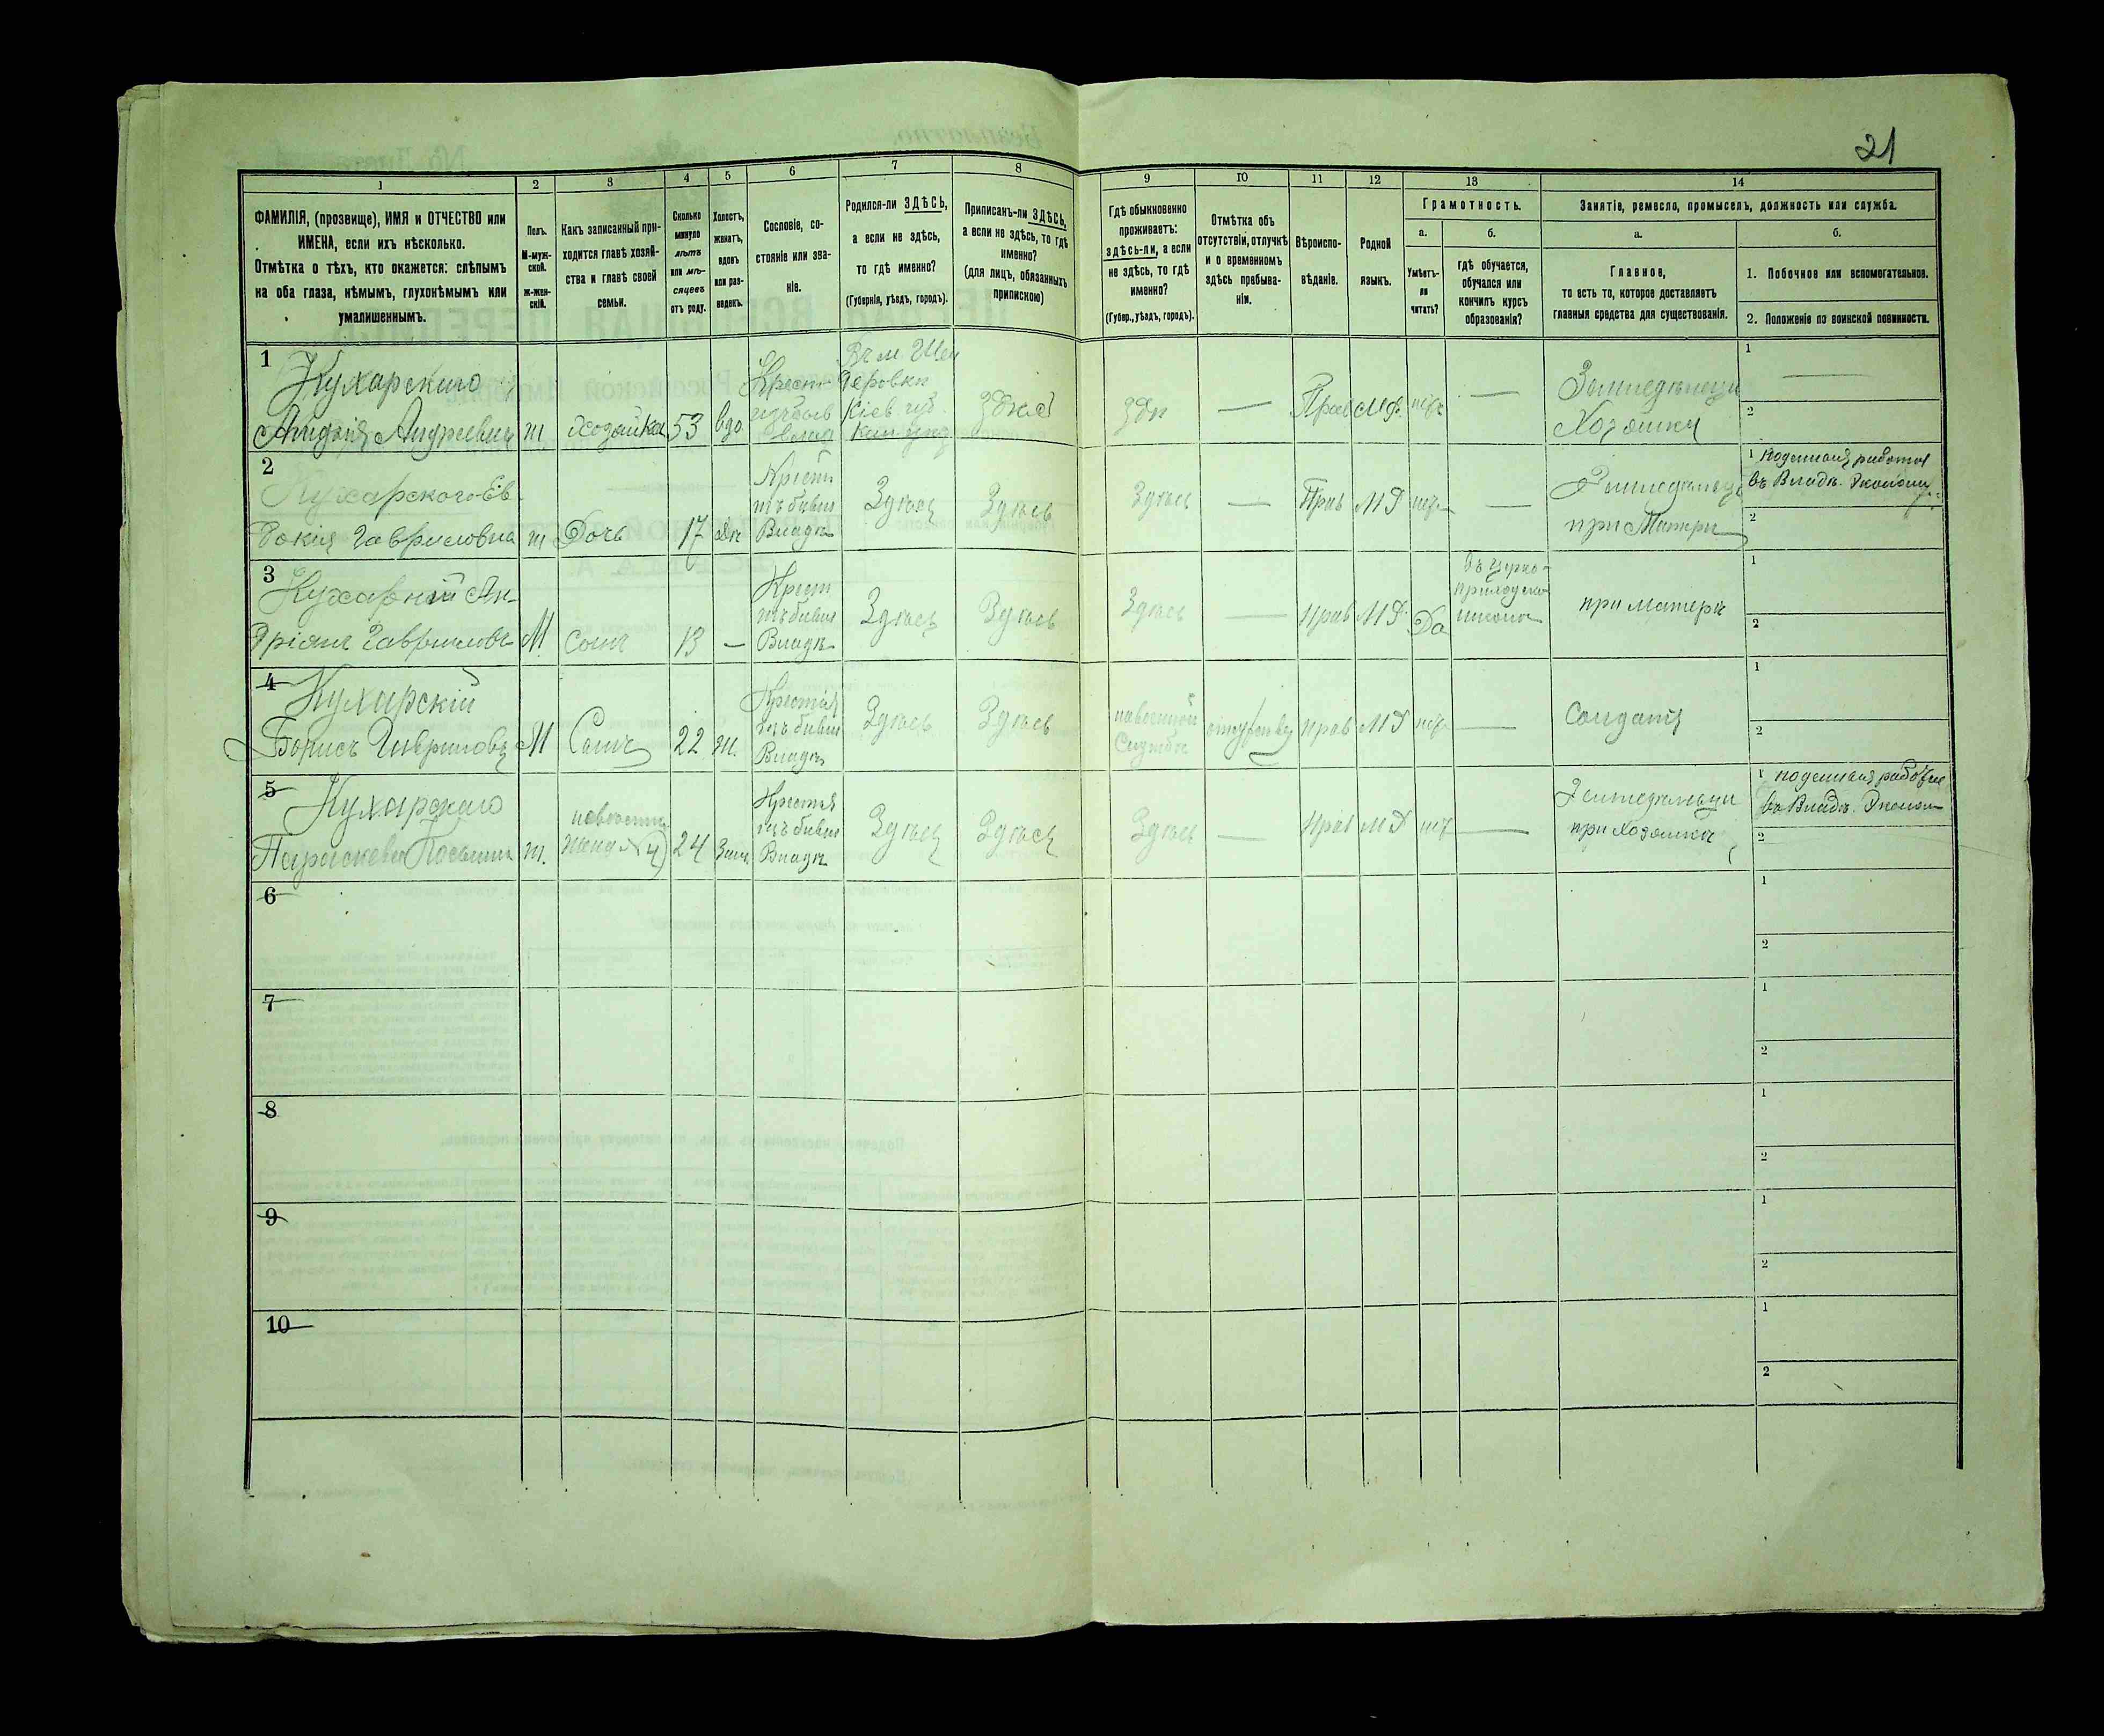 21
1 2 3 4 5 6 7 8 9 10 11 12 13 14
ФАМИЛІЯ, (прозвище), ИМЯ и ОТЧЕСТВО или
ИМЕНА, если ихъ нѣсколько.
Отмѣтка о тѣхъ, кто окажется: слѣпымъ
на оба глаза, нѣмымъ, глухонѣмымъ или
умалишеннымъ.
Полъ.
М-муж-
ской.
Ж-жен-
скій.
Какъ записанный при-
ходится главѣ хозяй-
ства и главѣ своей
семьи.
Сколько
минуло
лѣтъ
или мѣ-
сяцевъ
отъ роду.
Холостъ,
женатъ,
вдовъ
или раз-
веденъ.
Сословіе, со-
стояніе или зва-
ніе.
Родился-ли ЗДѢСЬ,
а если не здѣсь,
то гдѣ именно?
(Губернія, уѣздъ, городъ).
Приписанъ-ли ЗДѢСЬ,
а если не здѣсь, то гдѣ
именно?
(для лицъ, обязанныхъ
припискою)
Гдѣ обыкновенно
проживаетъ:
здѣсь-ли, а если
не здѣсь, то гдѣ
именно?
(Губер., уѣздъ, городъ).
Отмѣтка объ
отсутствіи, отлучкѣ
и о временномъ
здѣсь пребыва-
ніи.
Вѣроиспо-
вѣданіе.
Родной
языкъ.
Грамотность.
а.
Умѣетъ-
ли
читать?
б.
гдѣ обучается,
обучался или
кончилъ курсъ
образованія?
Занятіе, ремесло, промыселъ, должность или служба.
а.
Главное,
то есть то, которое доставляетъ
главныя средства для существованія.
б.
1. Побочное или вспомогательное.
2. Положеніе по воинской повинности.
1
Кухарского
Андреевна ж Хозяйка 53 вдо
Крест
Кіев. губ.
Прав
Хозяйка
1
2
2
Кухарского Ев-
докия Гавриловна ж Дочь 17 Дѣ
Крестя
изъ бывш
Владѣ
Здѣсь Здѣсь Здѣсь — Прав МР —
при Матери
1 поденная работа
въ Владѣ. Экономи
2
3
Кухарский Ан-
дріянъ Гавриловъ М сынъ 13 —
Крест
изъ бывш
Владѣ
Здѣсь Здѣсь Здѣсь — прав МР Да
въ церко-
приходско
школѣ
при матери
1
2
4
Кухарскій
Борисъ Гавриловъ М Сынъ 22 ж.
Крестья
изъ бывш
Владѣ
Здѣсь Здѣсь
на военной
Службѣ
прав МР —
Солдатъ
1
2
5
Кухарского
Параскева ж.
Жена №4) 24 Зам
Крестья
изъ бывш
Владѣ
Здѣсь Здѣсь Здѣсь — прав МР —
при Хозяйкѣ
1 поденная работа
въ Владѣ. Эконом
2
6
1
2
7
1
2
8
1
2
9
1
2
10
1
2